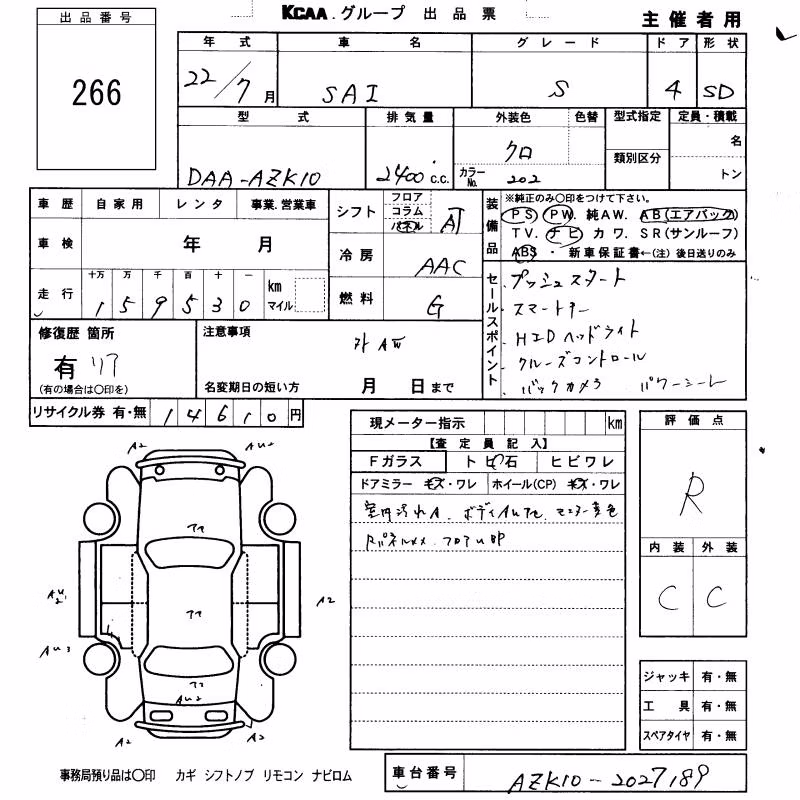 出品番号
266
KCAA.グループ 出品票
主催者用
年式 車名 グレード ドア 形状
22/7月 SAI S 4 SD
型式 排気量 外装色 色替 型式指定 定員・積載
名
DAA-AZK10 2400 c.c. クロ カラーNo. 202 類別区分 トン
車歴 自家用 レンタ 事業.営業車
車検 年 月
走行 十万 万 千 百 十 一
1 5 9 5 3 0 km マイル
シフト フロア コラム パネル AT
冷房 AAC
燃料 G
装備品
※純正のみ〇印をつけて下さい。
PS PW. 純AW. AB(エアバック)
TV. ナビ カワ. SR(サンルーフ)
ABS ・ 新車保証書←(注) 後日送りのみ
セールスポイント
プッシュスタート
スマートキー
HIDヘッドライト
クルーズコントロール
バックカメラ パワーシート
修復歴 箇所
有 リア
(有の場合は〇印を)
注意事項
名変期日の短い方 月 日まで
リサイクル券 有・無 14610円
現メーター指示 km
【査定員記入】
Fガラス トビ石 ヒビワレ
ドアミラー キズ・ワレ ホイール(CP) キズ・ワレ
室内汚れA. ボディAUアセ. モニター変色
評価点
R
内装 外装
C C
ジャッキ 有・無
工具 有・無
スペアタイヤ 有・無
A2 AU2
アア
AU2 アア A2
AU3
AU2
A2 A2
事務局預り品は〇印 カギ シフトノブ リモコン ナビロム
車台番号 AZK10-2027189